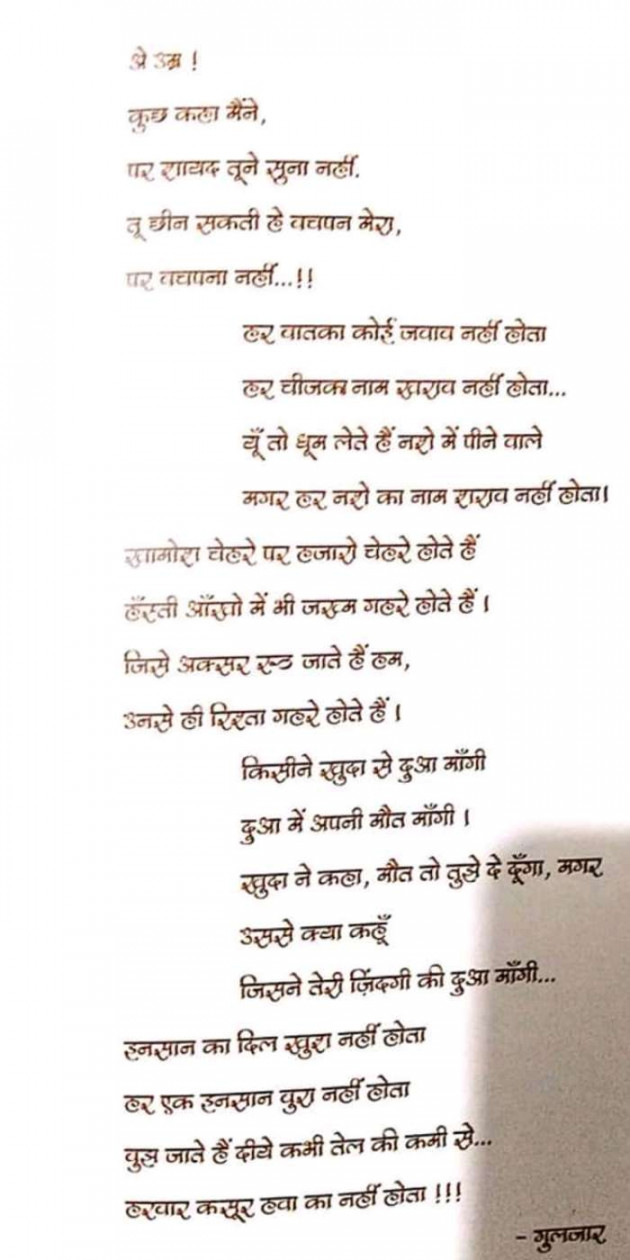 अे उम्र !
कुछ कहा मैंने,
पर शायद तूने सुना नहीं.
तू छीन सकती हे बचपन मेरा,
पर बचपना नहीं...!!
हर बातका कोई जवाब नहीं होता
हर चीजका नाम खराब नहीं होता...
यूँ तो धूम लेते हैं नशे में पीने वाले
मगर हर नशे का नाम शराब नहीं होता।
खामोश चेहरे पर हजारो चेहरे होते हैं
हँस्ती आँखो में भी जख्म गहरे होते हैं ।
जिसे अक्सर रूठ जाते हैं हम,
उनसे ही रिश्ता गहरे होते हैं ।
किसीने खुदा से दुआ माँगी
दुआ में अपनी मौत माँगी ।
खुदा ने कहा, मौत तो तुझे दे दूँगा, मगर
उससे क्या कहूँ
जिसने तेरी ज़िंदगी की दुआ माँगी...
इनसान का दिल खुश नहीं होता
हर एक इनसान बुरा नहीं होता
बुझ जाते हैं दीये कभी तेल की कमी से...
हरबार कसूर हवा का नहीं होता !!!
- गुलजार